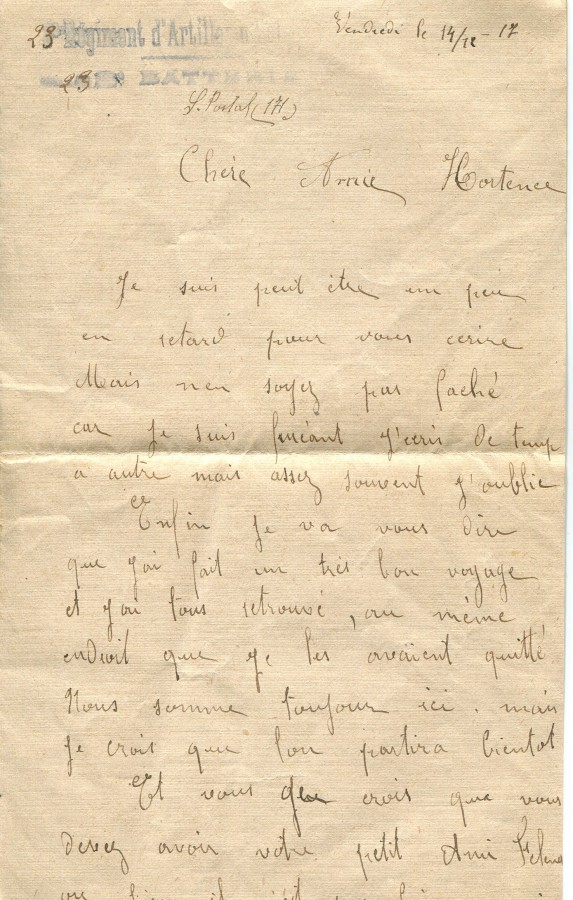 23e Régiment d'Artillerie
23e BATTERIE
Vendredi le 14/12 - 17
S. Postal (171)
Chére Amie Hortence
Je suis peut être un peu
en retard pour vous ecrire
Mais n'en soyez pas faché
car je suis feneant j'ecris de temp
a autre mais assez souvent j'oublie
Enfin je va vous dire
que j'ai fait un trés bon voyage
et j'ai tous retrouvé, au même
endroit que je les avaient quitté
Nous somme toujour ici. mais
je crois que lon partira bientot
Et vous je crois que vous
devez avoir votre petit Ami
ou bien il